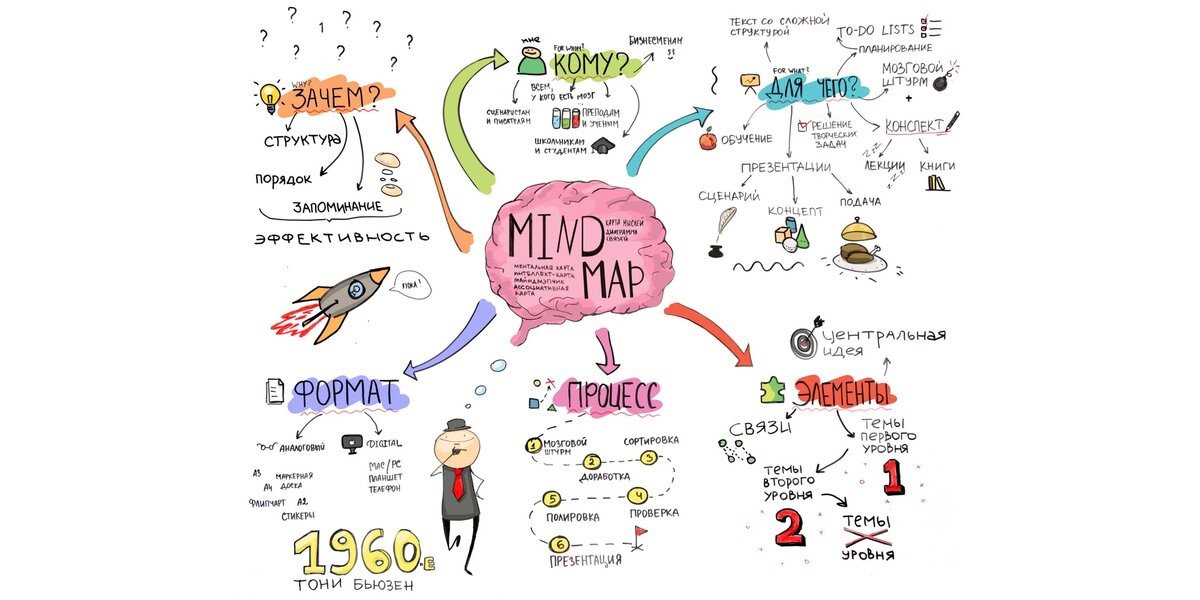 MIND
MAP
КАРТА МЫСЛЕЙ
ДИАГРАММА
СВЯЗЕЙ
МЕНТАЛЬНАЯ КАРТА
ИНТЕЛЛЕКТ-КАРТА
МАЙНДМЭППИНГ
АССОЦИАТИВНАЯ
КАРТА
? ? 1 ? ? ? ? ?
WHY?
ЗАЧЕМ?
СТРУКТУРА
ПОРЯДОК
ЗАПОМИНАНИЕ
ЭФФЕКТИВНОСТЬ
МНЕ
FOR WHOM?
КОМУ?
БИЗНЕСМЕНАМ
ВСЕМ,
У КОГО ЕСТЬ МОЗГ
СЦЕНАРИСТАМ
И ПИСАТЕЛЯМ
ПРЕПОДАМ
И УЧЕНЫМ
ШКОЛЬНИКАМ
И СТУДЕНТАМ
FOR WHAT?
ДЛЯ ЧЕГО?
ТЕКСТ СО СЛОЖНОЙ
СТРУКТУРОЙ
TO-DO LISTS
ПЛАНИРОВАНИЕ
МОЗГОВОЙ
ШТУРМ
+
КОНСПЕКТ
ZZZ
ЛЕКЦИИ
ZZZ
КНИГИ
ОБУЧЕНИЕ
РЕШЕНИЕ
ТВОРЧЕСКИХ
ЗАДАЧ
ПРЕЗЕНТАЦИИ
СЦЕНАРИЙ
КОНЦЕПТ
ПОДАЧА
ФОРМАТ
АНАЛОГОВЫЙ
DIGITAL
А3
МАРКЕРНАЯ
ДОСКА
А4
ФЛИПЧАРТ
А2
СТИКЕРЫ
MAC/PC
ПЛАНШЕТ
ТЕЛЕФОН
1960.Е
ТОНИ БЬЮЗЕН
ПРОЦЕСС
1
МОЗГОВОЙ
ШТУРМ
2
ДОРАБОТКА
3
СОРТИРОВКА
4
ПРОВЕРКА
5
ПОЛИРОВКА
6
ПРЕЗЕНТАЦИЯ
ЭЛЕМЕНТЫ
ЦЕНТРАЛЬНАЯ
ИДЕЯ
СВЯЗИ
ТЕМЫ
ПЕРВОГО
УРОВНЯ
1
ТЕМЫ
ВТОРОГО
УРОВНЯ
2
ТЕМЫ
X
УРОВНЯ